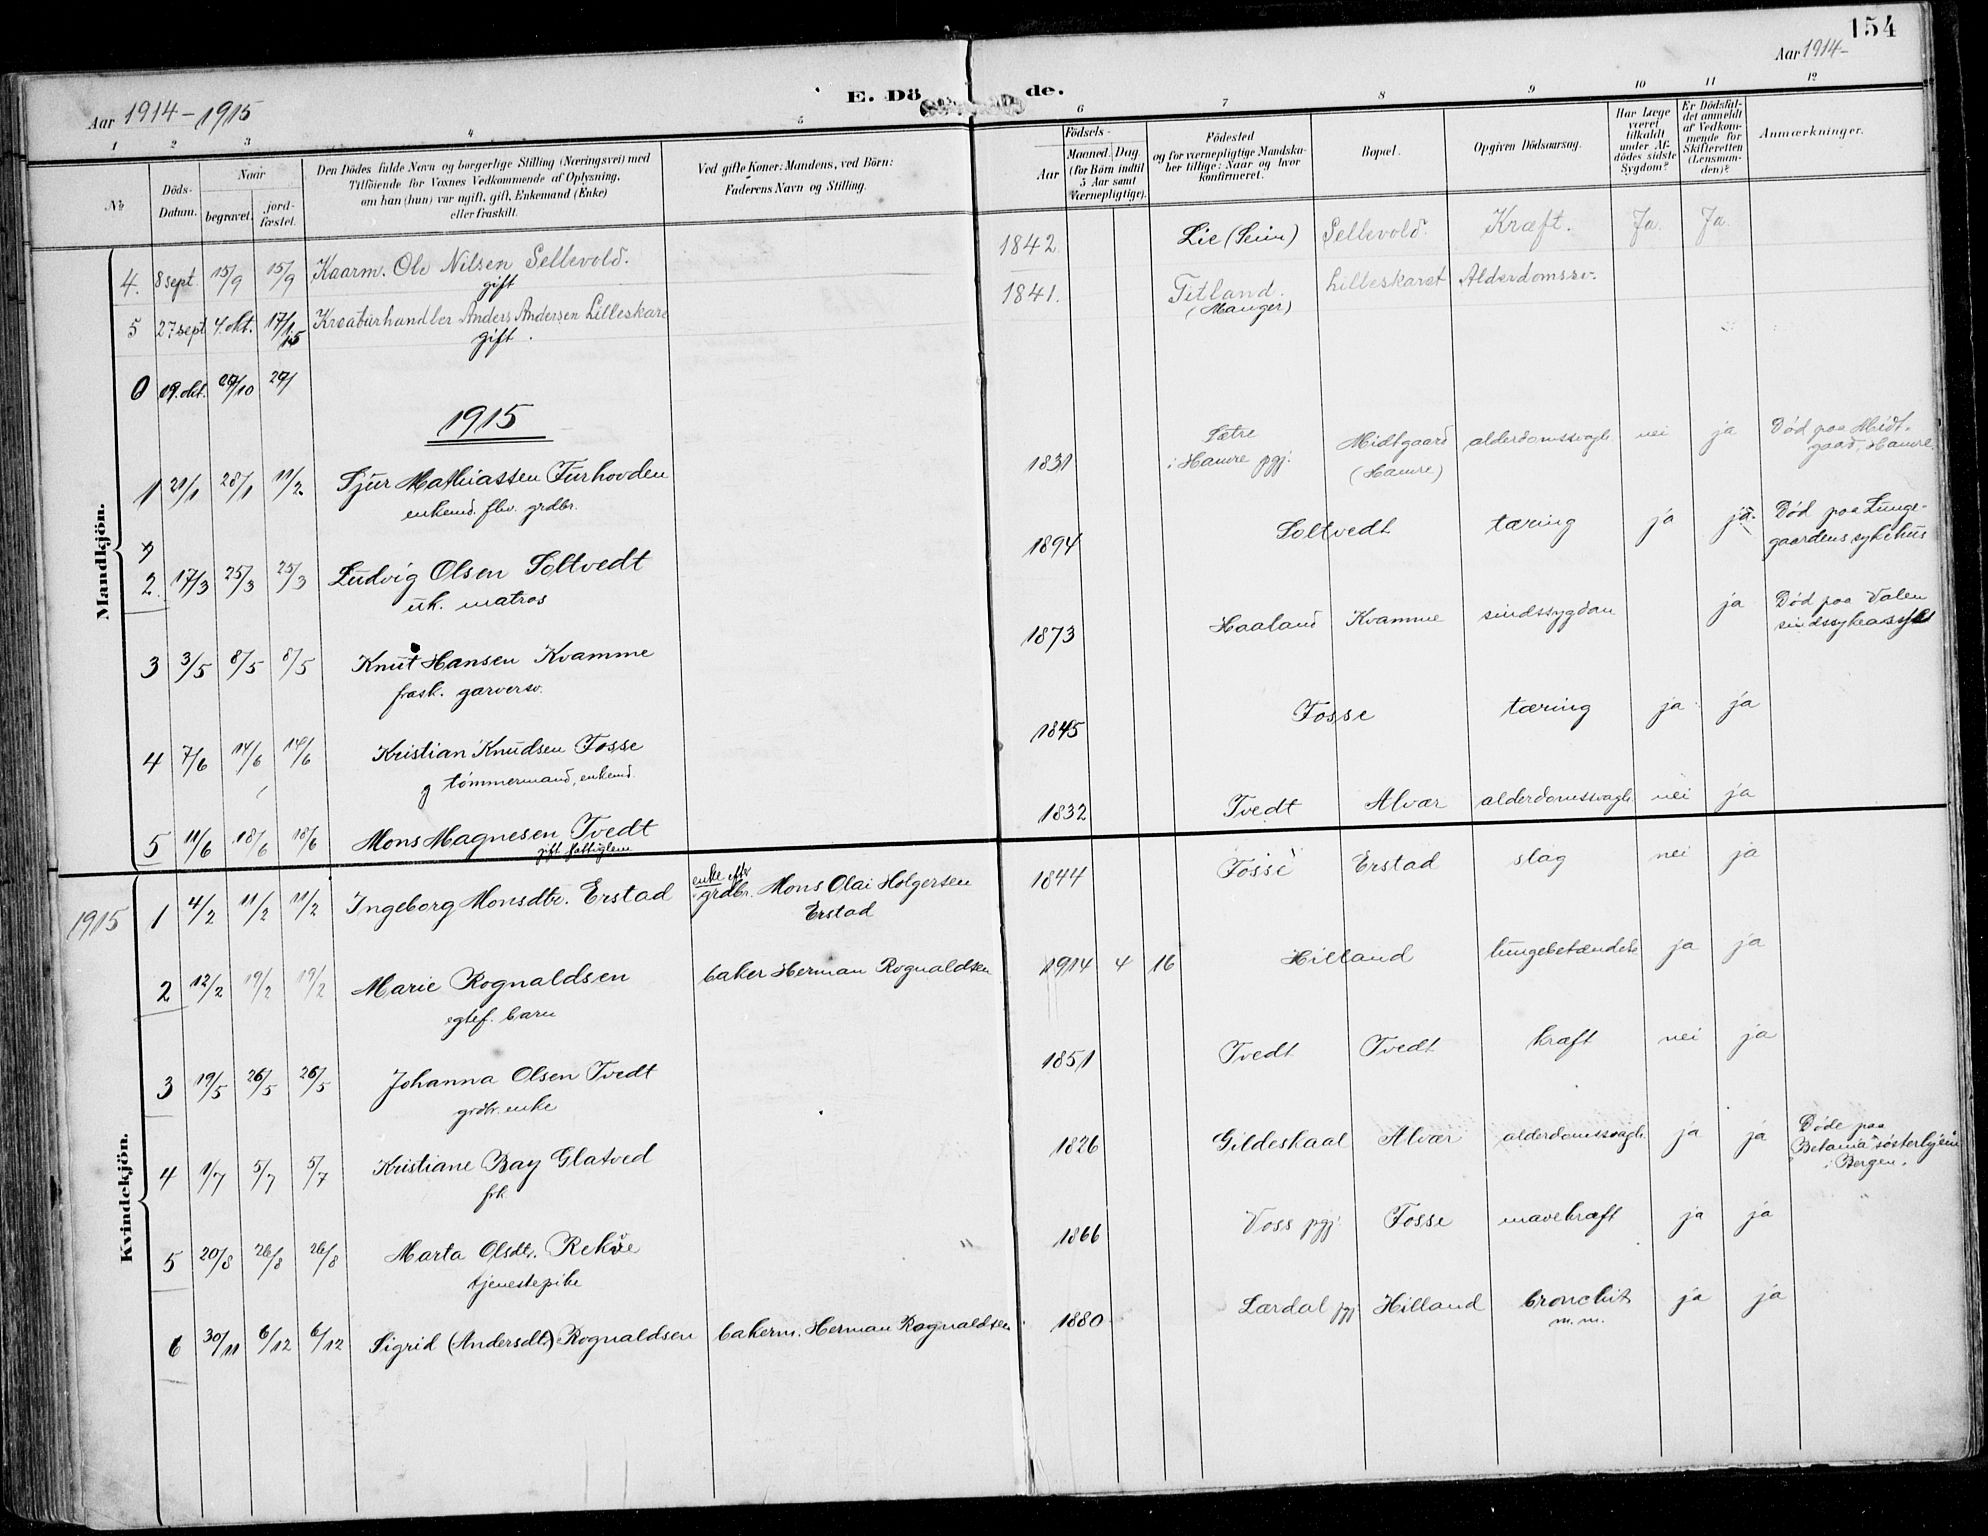 154
Aar 1914-1915
E. Dö de.
Aar 1914-
1 2 3 4 5 6 7 8 9 10 11 12
No
Döds-Datum.
Naar
begravet.
jord-fæstet.
Den Dödes fulde Navn og borgerlige Stilling (Næringsvei) med
Tilföiende for Voxnes Vedkommende af Oplysning,
om han (hun) var ugift, gift, Enkemand (Enke)
eller fraskilt.
Ved gifte Koner: Mandens, ved Börn:
Faderens Navn og Stilling.
Födsels-
Aar
Maaned. Dag.
(for Börn indtil
5 Aar samt
Værnepligtige).
Födested
og for værnepligtige Mandska-
ber tillige: Naar og hvor
konfirmeret.
Bopæl.
Opgiven Dödsaarsag.
Har Læge
været
tilkaldt
under Af-
dödes sidste
Sygdom?
Er Dödsfal-
det anmeldt
af Vedkom-
mende for
Skifteretten
(Lensman-
den)?
Anmærkninger.
Mandkjön.
4. 8 sept. 15/9 15/9 Kaarm. Ole Nilsen Sellevold. 1842 Lie (Seim) Sellevold. Kræft. Ja. Ja.
gift
5 27 sept 4. okt. 17/1 15 Kreaturhandler Anders Andersen Lilleskare 1841. Titland. Lilleskaret Alderdomssv.
gift. (Manger)
0 19. okt. 29/10 29/
1915
1 21/1 28/1 11/2. Sjur Mathiassen Furhovden 1831 Sætre Midtgaard alderdomssvagh. nei ja Død paa Midt-
enkemd. fhv. grdbr. i Hamre pgj. (Hamre) gaard, Hamre
2. 17/3 25/3 25/3 Ludvig Olsen Soltvedt 1894 Soltvedt tæring ja ja. Død paa Lunge-
uk. matros gaardens sykehus
3 3/5 8/5 8/5 Knut Hansen Kvamme 1873 Haaland Kvamme sindssygdom ja Død paa Valen
frask. garversv. sindssykeasyl
4 7/6 14/6 14/6 Kristian Knudsen Fosse 1845 Fosse tæring ja ja
g tømmermand, enkemd.
5 11/6 18/6 18/6 Mons Magnesen Tvedt 1832 Tvedt Alvær alderdomssvagh nei ja
gift fattiglem
Kvindekjön.
1915 1 4/2 11/2 11/2 Ingeborg Monsdtr. Erstad enke eftr grdbr. Mons Olai Holgersen 1844 Fosse Erstad slag nei ja
Erstad
2 12/2 19/2 19/2 Marie Rognaldsen baker Herman Rognaldsen 1914 4 16 Hilland lungebetændelse ja ja
egtef. barn
3 19/5 26/5 26/5 Johanna Olsen Tvedt 1851 Tvedt Tvedt kræft nei ja
grdbr. enke
4 1/7 5/7 5/7 Kristiane Bay Glatved 1826 Gildeskaal Alvær alderdomssvagh ja ja Døde paa
frk. "Betania" søsterhjem
i Bergen.
5 20/8 26/8 26/8 Marta Olsdtr. Rekve 1866 Voss pgj. Fosse mavekræft ja ja
tjenestepike
6 30/11 6/12 6/12 Sigrid (Andersdtr) Rognaldsen bakerm. Herman Rognaldsen 1880 Lærdal pgj Hilland bronchit ja ja
m. m.